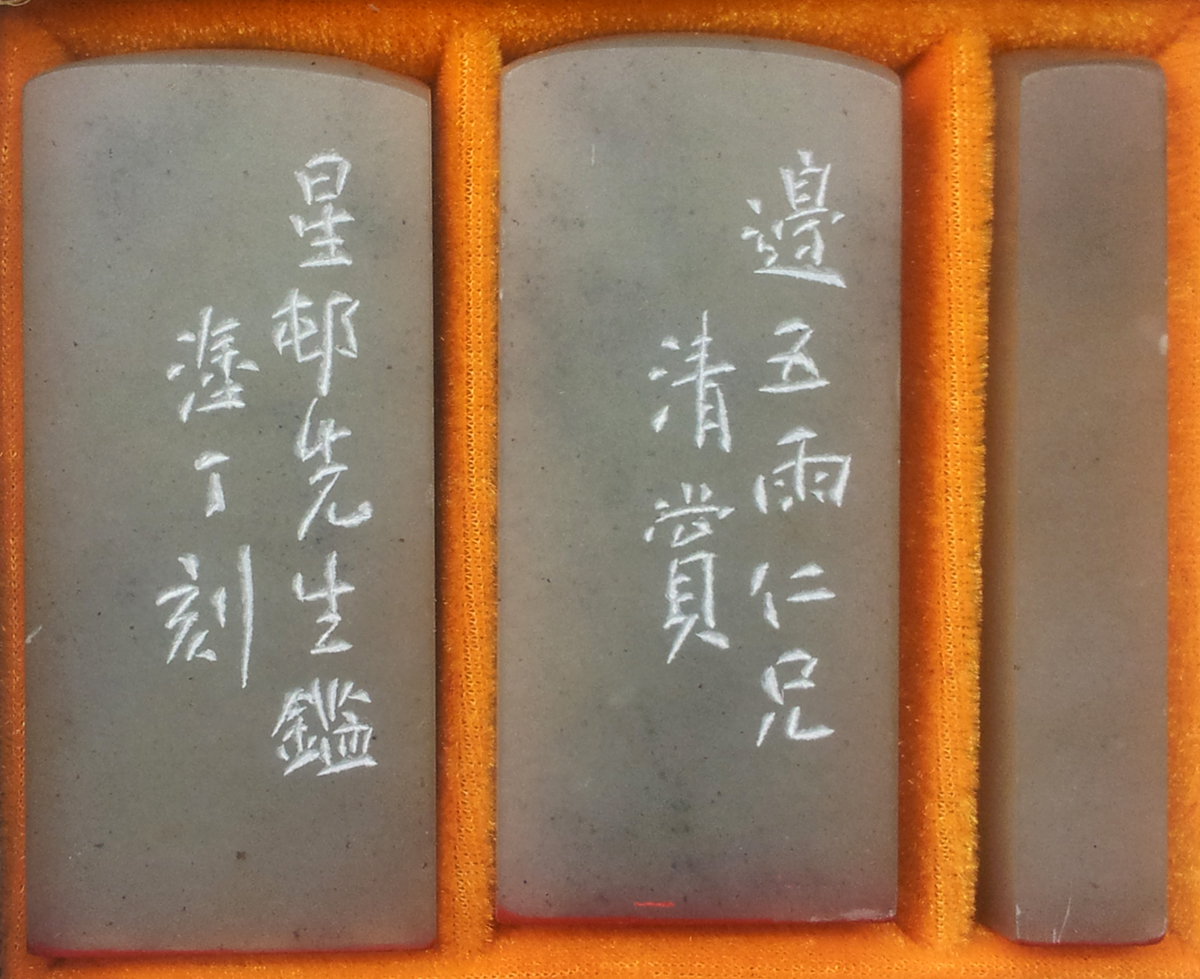 邊五雨仁兄
清賞
星邨先生鑑
塗丁刻